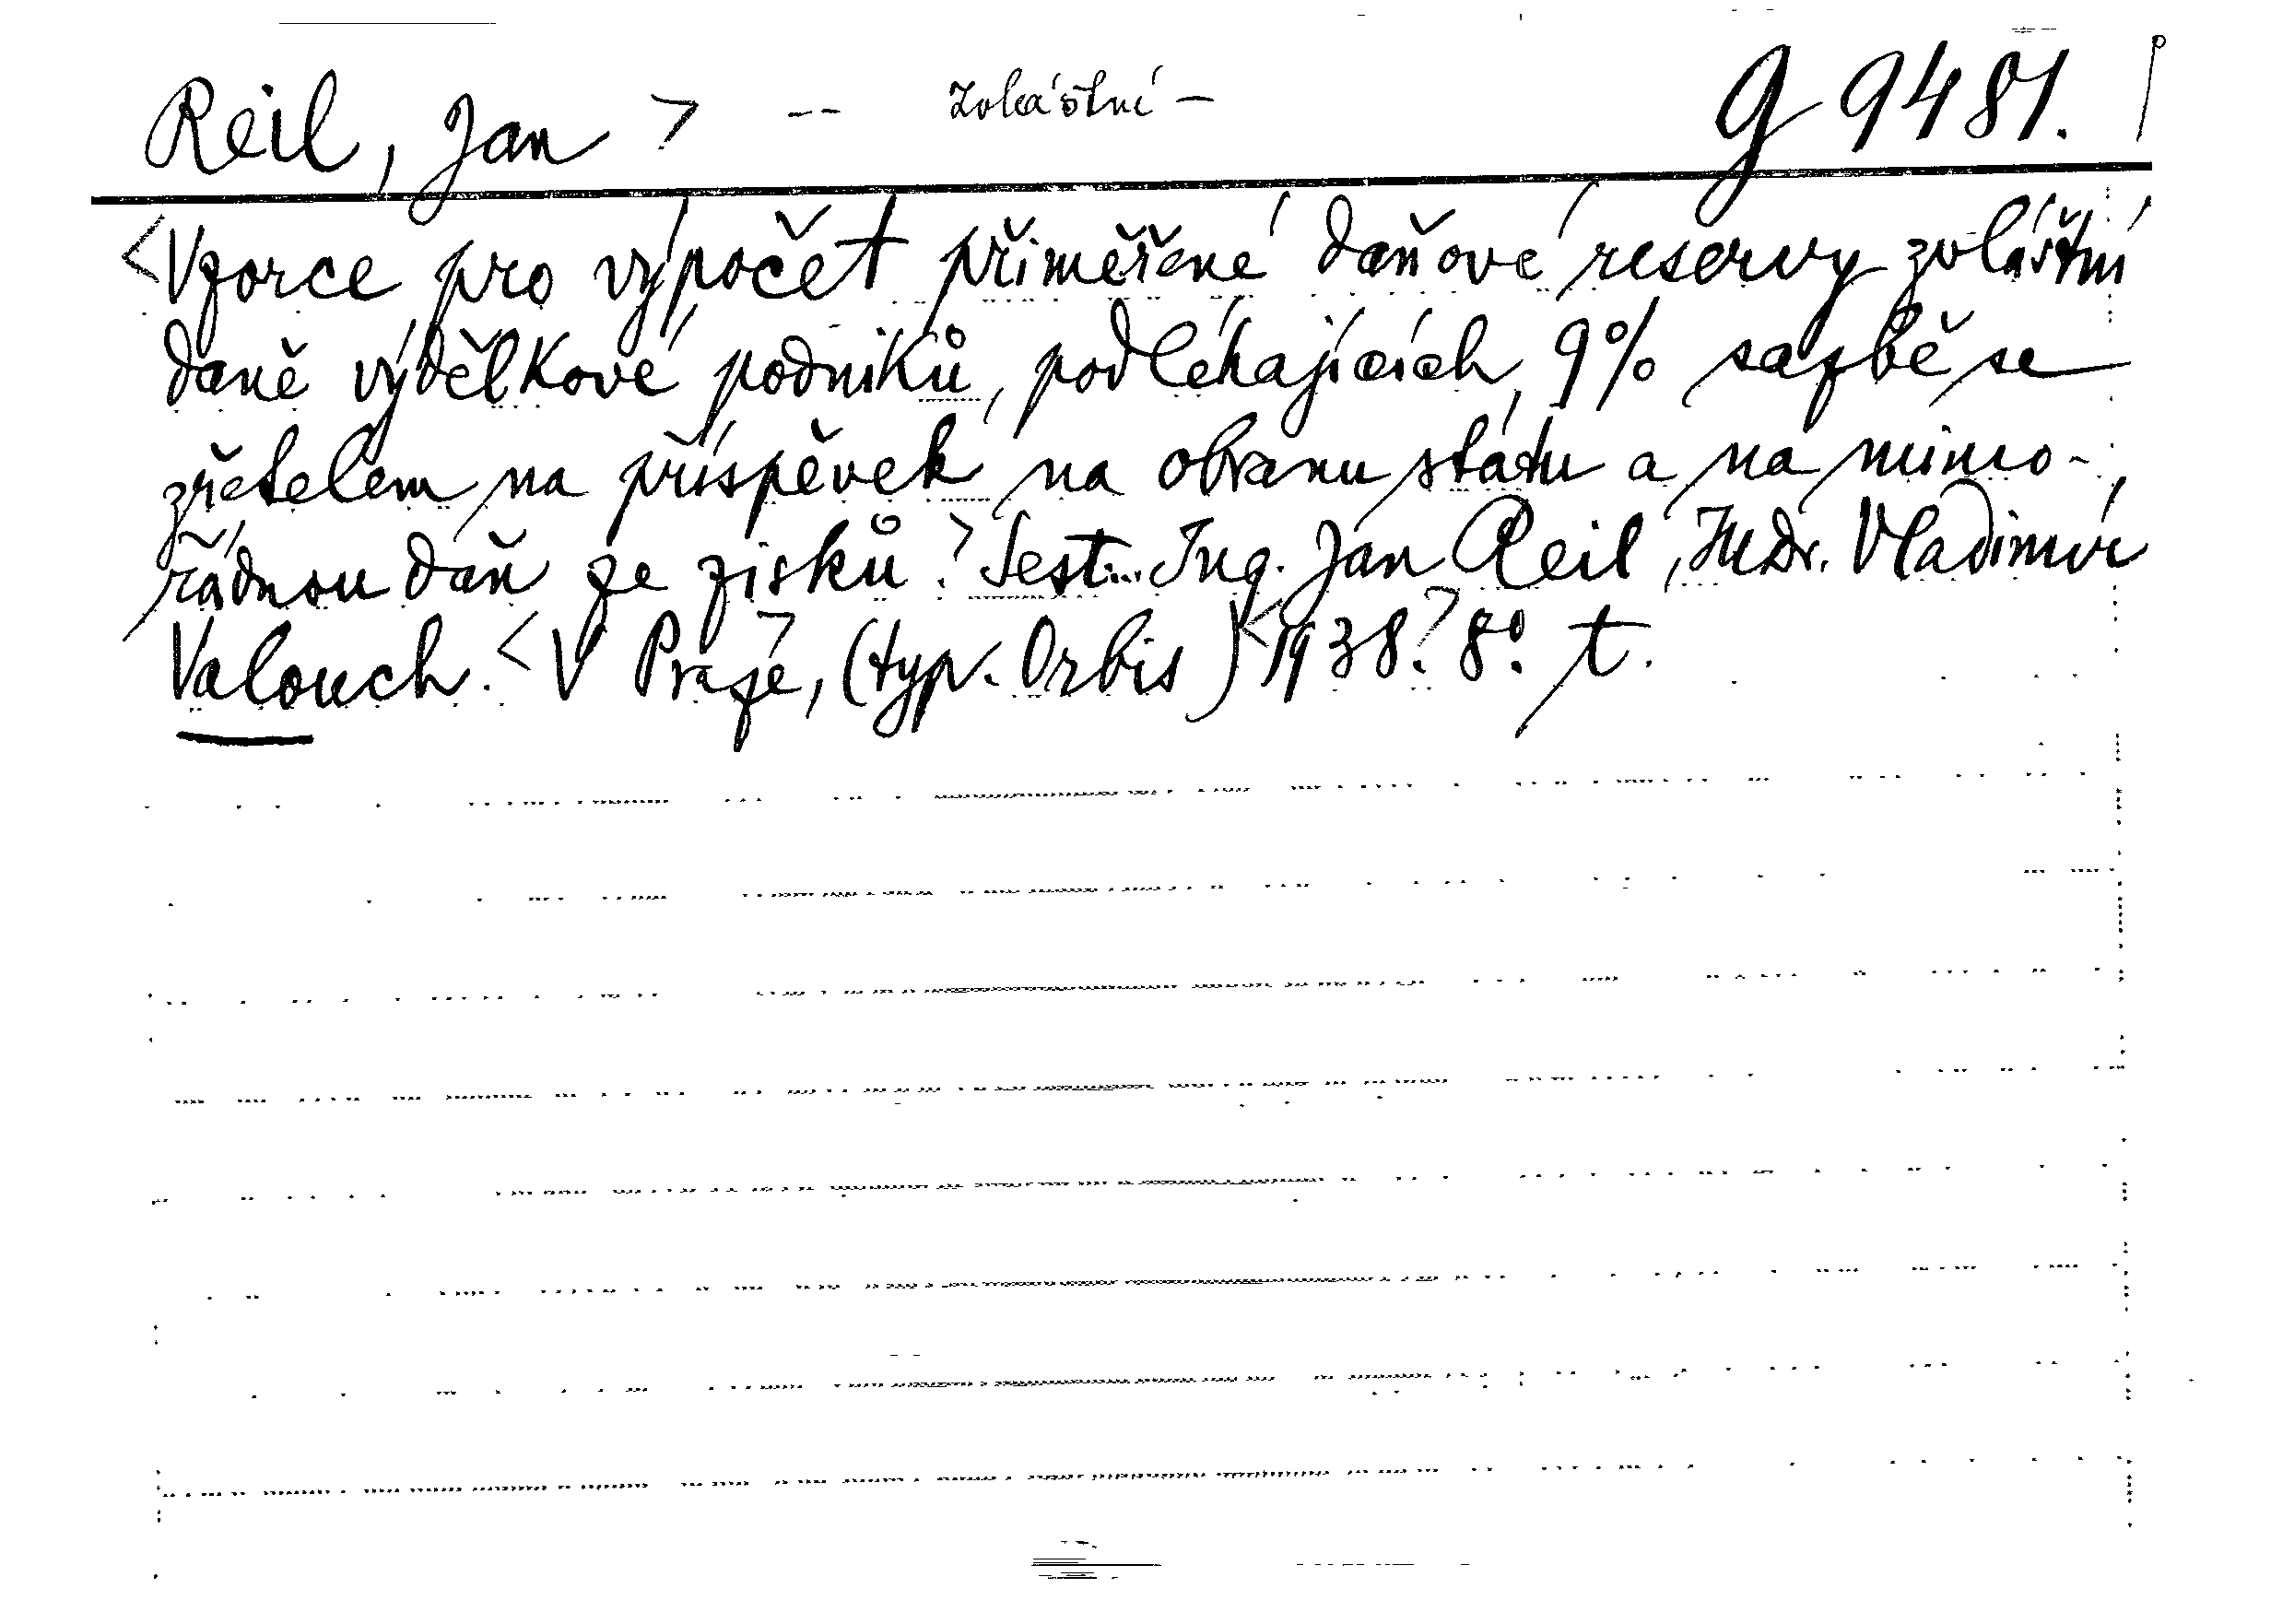 Reil, Jan > -- zvláštní - g 9481.
<Vzorce pro výpočet přiměřené daňové reservy zvláštní
daně výdělkové podniků, podléhajících 9% sazbě se
zřetelem na příspěvek na obranu státu a na mimo-
řádnou daň ze zisků.> Sest... Ing. Jan Reil, JUDr. Vladimír
Valouch. <V Praze>, (typ. Orbis) <1938.> 8°. t.